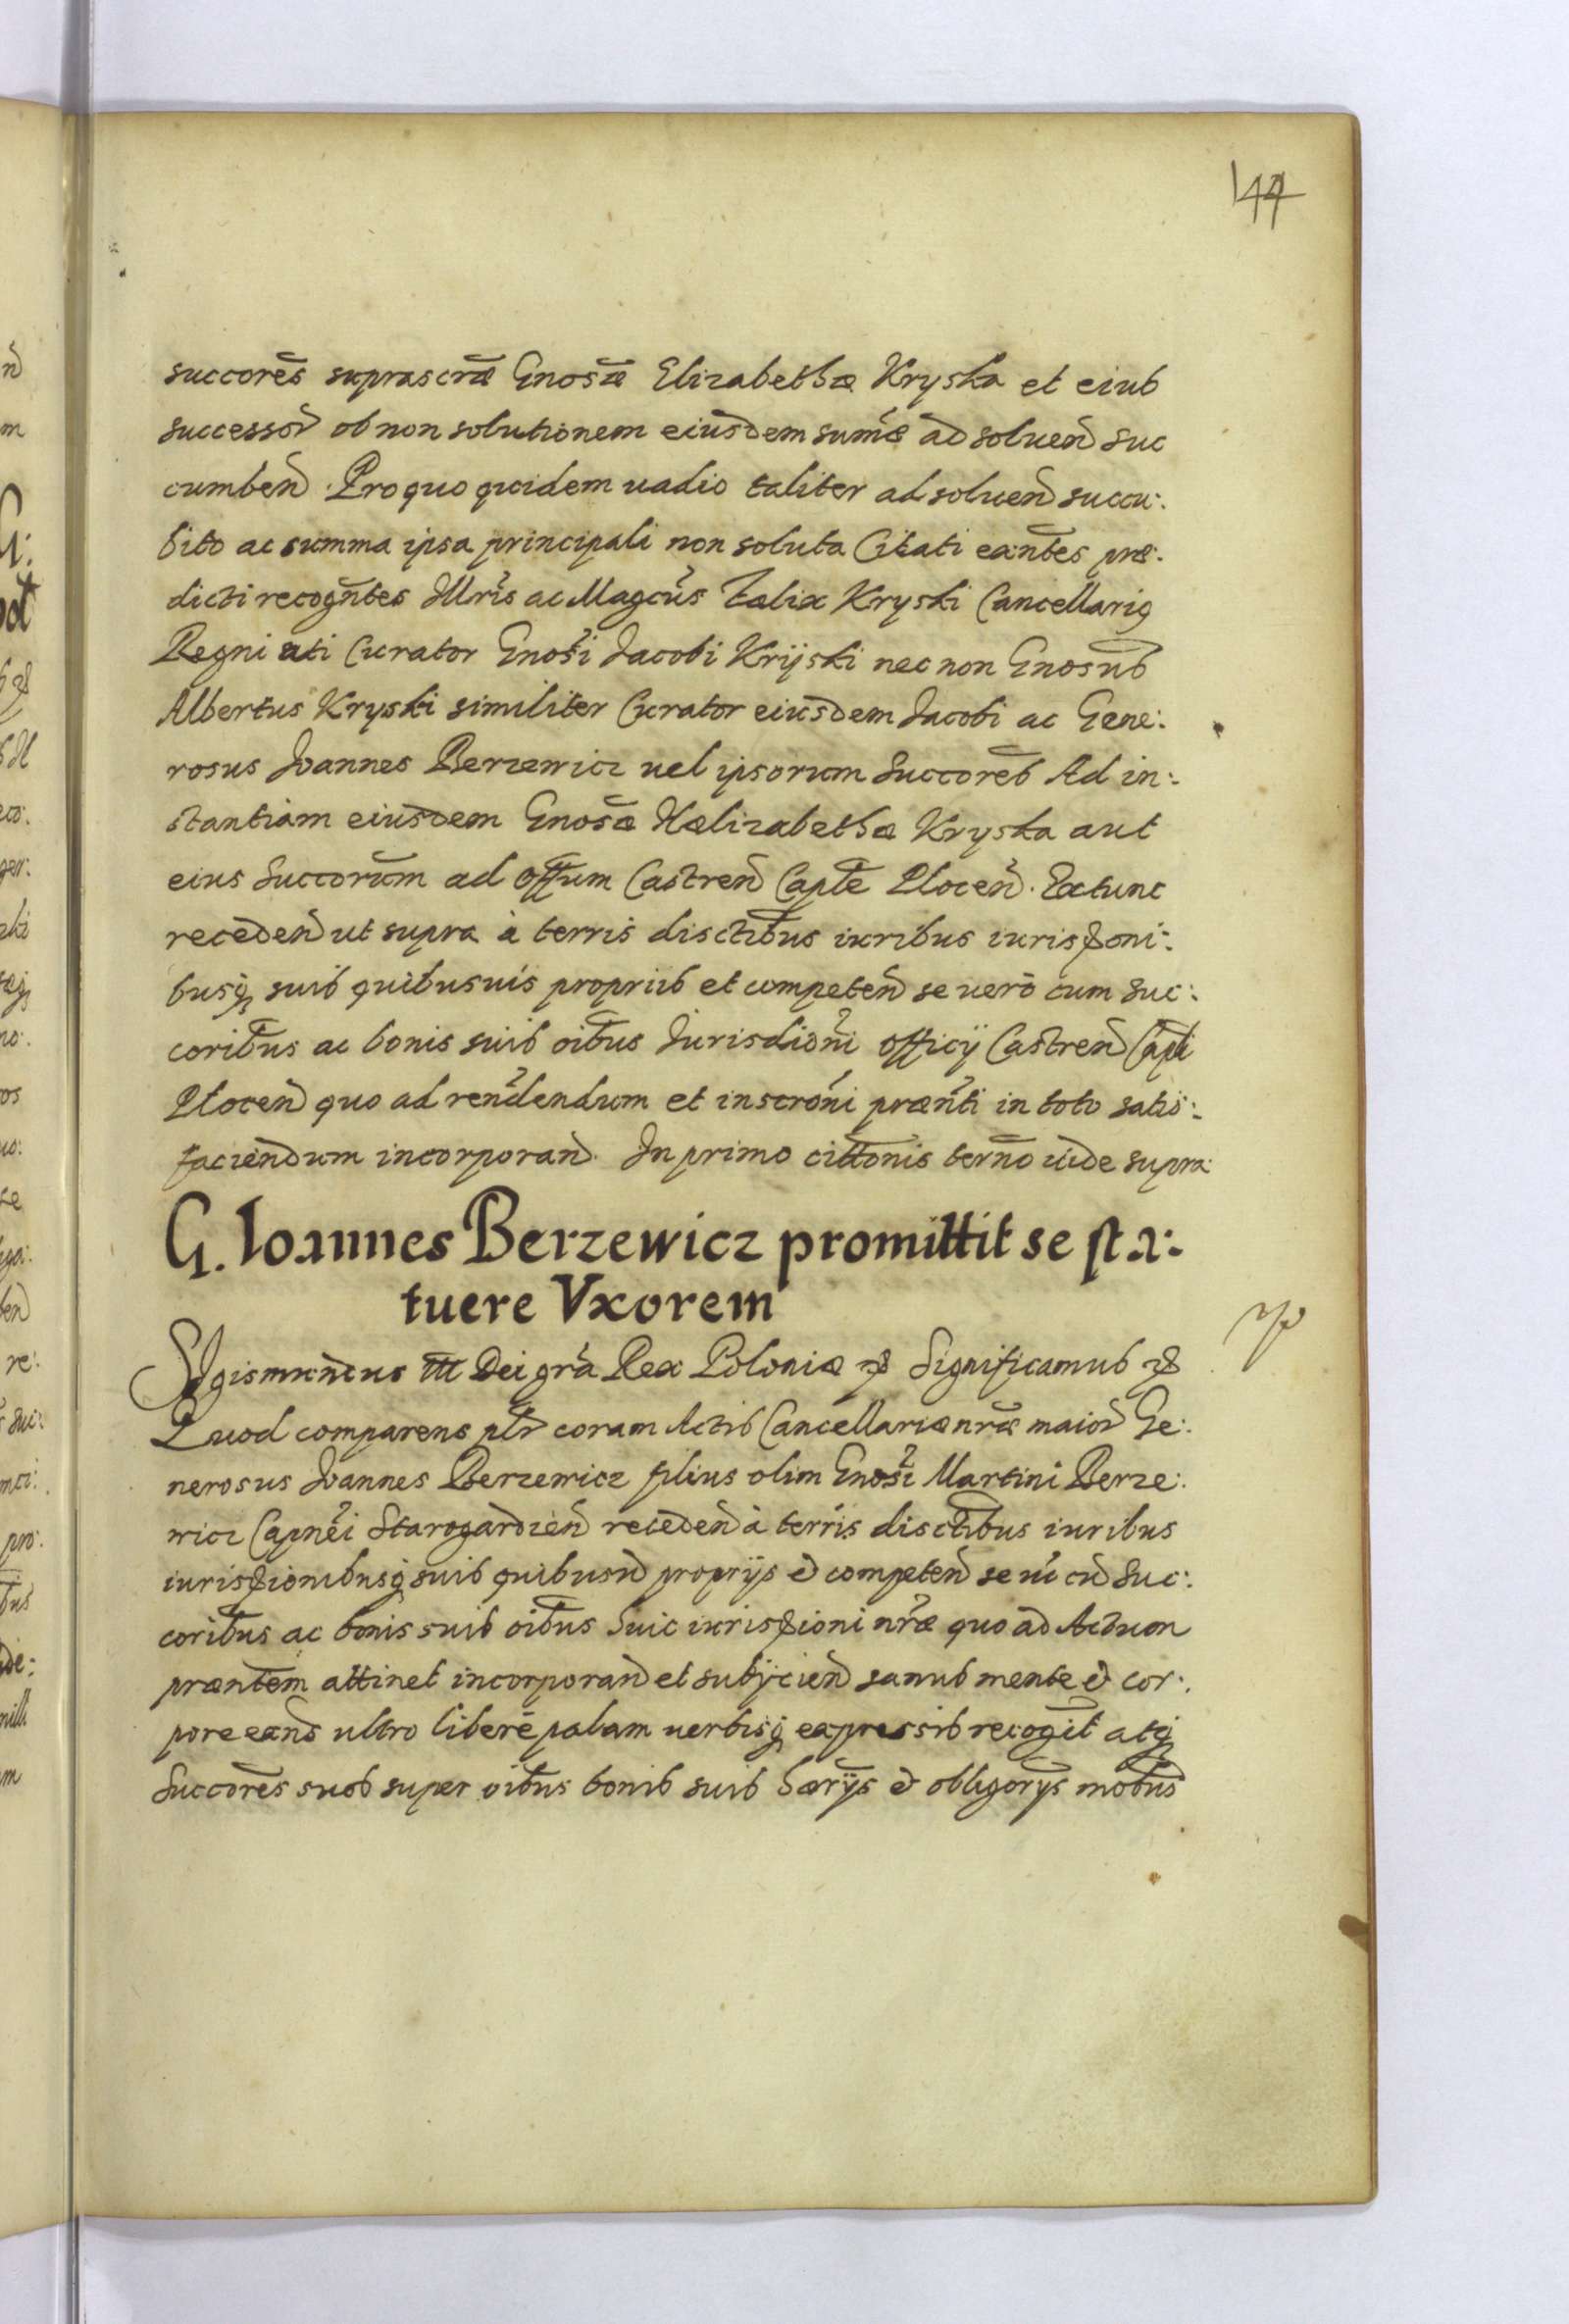 144
succorēs suprascrãe Gnosãe Elizabethæ Kryska et eius
successor̃ ob non solutionem eiusdem sum̃æ ad soluend̃ suc
cumbend̃. Pro quo quidem uadio taliter ad soluend̃ succu:
bito ac summa ipsa principali non soluta Citati exañtes præ:
dicti recogñtes Illr̃is ac Magcũs Fælix Kryski Cancellariq
Regni uti Curator Gnosĩ Jacobi Krijski nec non Gnosũs
Albertus Kryski similiter Curator eiusdem Jacobi ac Gene:
rosus Joannes Berzewicz uel ipsorum Succorẽs Ad in:
stantiam eiusdem Gnosãe Hælizabethæ Kryska aut
eius Succorũm ad Offum Castren̄ Capt̃e Plocen̄. Extunc
recedend̃ ut supra à terris disctĩbus iuribus iurisđoni:
busq́ suis quibusuis proprijs et competeñ se uerò cum suc:
coribus ac bonis suis oĩbus Jurisdiom̃i officij Castren̄ Capt̃i
Plocen̄ quo ad ren̄dendum et inscroñi præñti in toto satis:
faciendum incorporand̃. In primo citt̃onis term̃o ũide supra
G. Ioannes Berzewicz promittit se sta:
tuere Vxorem
Sigismundus III Dei gr̃a Rex Poloniæ etc̃ Significamus etc̃
Quod comparens pl̃r coram Actis Cancellariæ nr̃æ maior̃ Ge:
nerosus Joannes Berzewicz filius olim Gnosĩ Martini Berze:
wicz Capnẽi Starogardzien̄ recedend̃ à terris disctĩbus iuribus
iurisđionibusq́ suis quibusũ proprijs et competeñ se ũ cũ Suc:
coribus ac bonis suis oĩbus huic iurisđioni nr̃æ quo ad Actum
præntẽm attinet incorporand̃ et subijciend̃ sanus mente et cor:
pore exans̃ ultro liberè palam uerbisq́ expressis recogĩt atq́
Succorẽs suos super oĩbus bonis suis hærijs et obligorijs mobũs